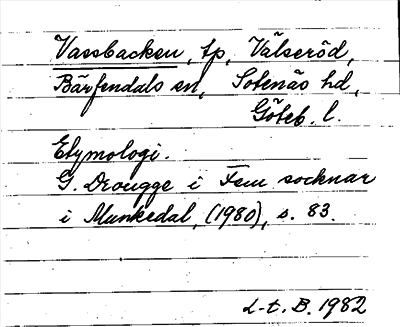 Vassbacken, tp, Välseröd,
Bärfendals sn, Sotenäs hd,
Göteb. l.
Etymologi.
G. Drougge i Fem socknar
i Munkedal, (1980), s. 83.
L-t. B. 1982